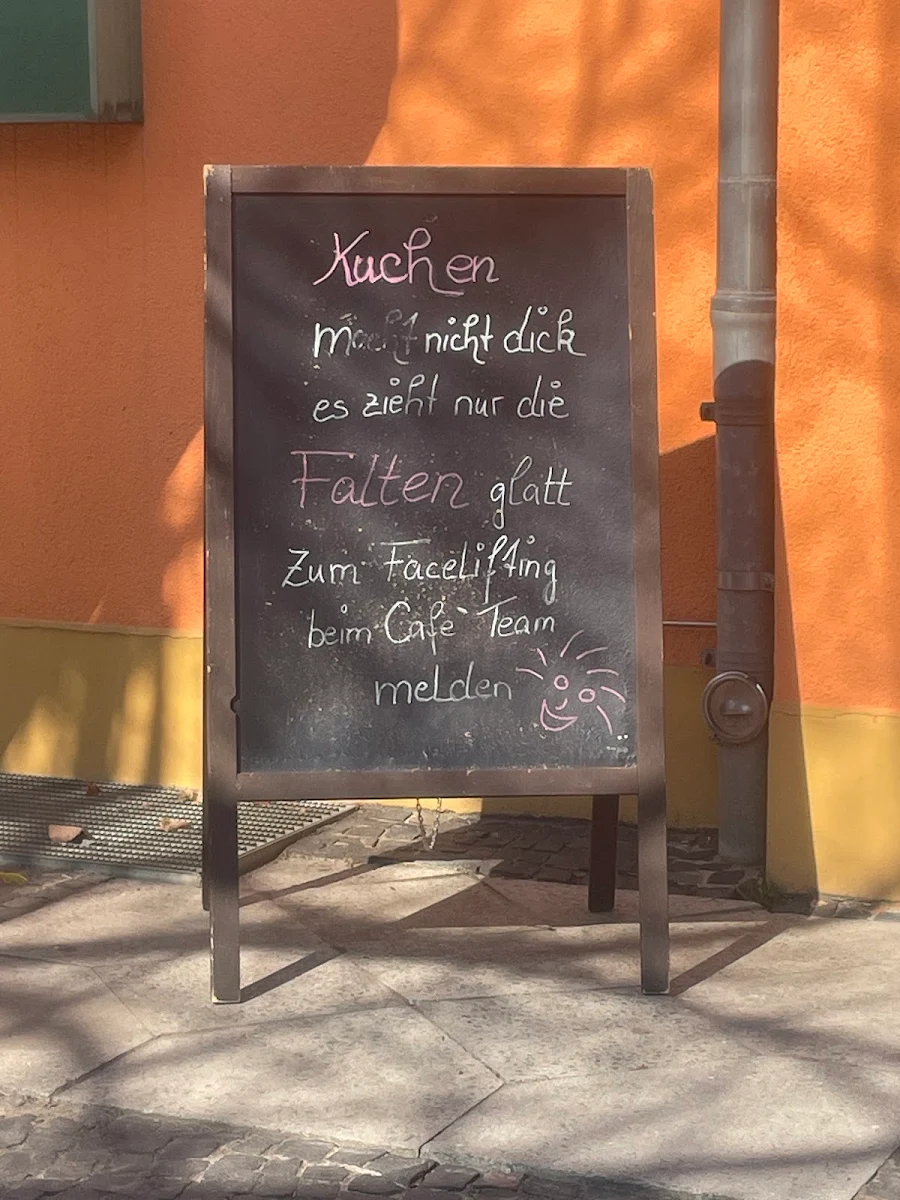 Kuchen
macht nicht dick
es zieht nur die
Falten glatt
Zum Facelifting
beim Cafè Team
melden